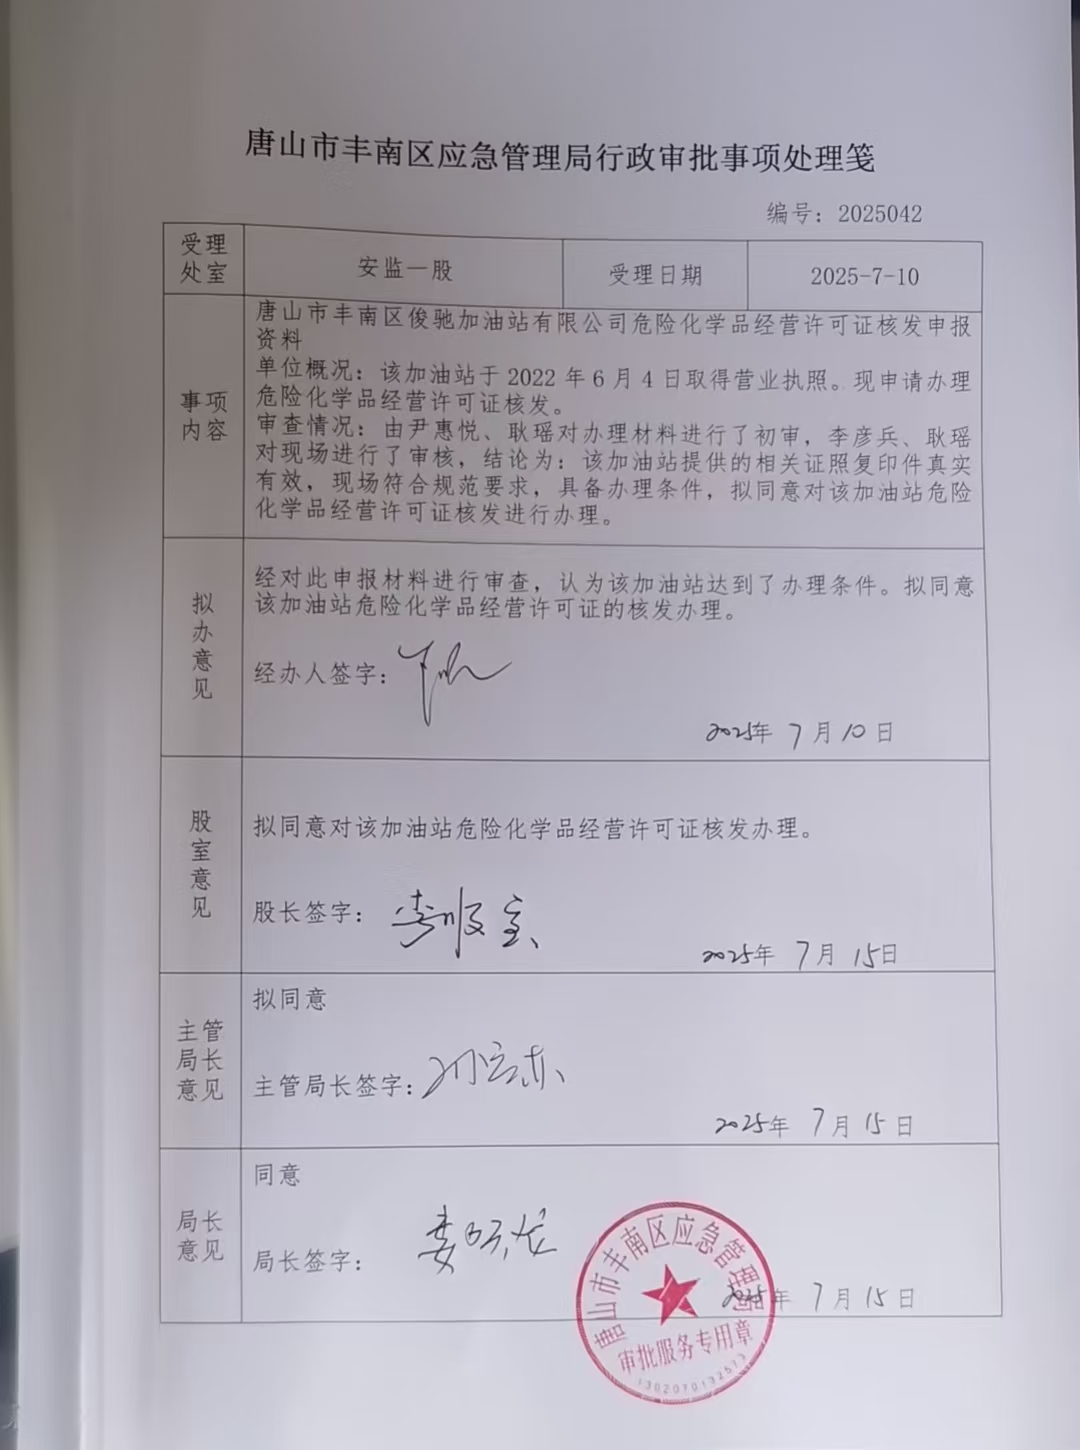 唐山市丰南区应急管理局行政审批事项处理笺
编号：2025042
受理
处室
安监一股
受理日期
2025-7-10
事项
内容
唐山市丰南区俊驰加油站有限公司危险化学品经营许可证核发申报
资料
单位概况：该加油站于 2022 年 6 月 4 日取得营业执照。现申请办理
危险化学品经营许可证核发。
审查情况：由尹惠悦、耿瑶对办理材料进行了初审，李彦兵、耿瑶
对现场进行了审核，结论为：该加油站提供的相关证照复印件真实
有效，现场符合规范要求，具备办理条件，拟同意对该加油站危险
化学品经营许可证核发进行办理。
拟
办
意
见
经对此申报材料进行审查，认为该加油站达到了办理条件。拟同意
该加油站危险化学品经营许可证的核发办理。
经办人签字：
2025年 7月10日
股
室
意
见
拟同意对该加油站危险化学品经营许可证核发办理。
股长签字：
2025年 7月 15日
主管
局长
意见
拟同意
主管局长签字：
2025年 7月 15日
局长
意见
同意
局长签字：
2025年 7月 15日
唐山市丰南区应急管理局
审批服务专用章